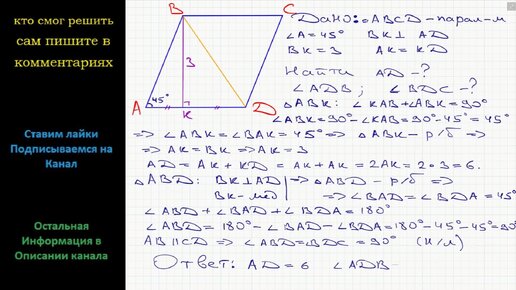 кто смог решить
сам пишите в
комментариях
Ставим лайки
Подписываемся на
Канал
Остальная
Информация в
Описании канала
B
C
3
45°
A
K
D
Дано: ABCD - парал-м
∠A = 45° BK ⊥ AD
BK = 3 AK = KD
Найти AD - ?
∠ADB; ∠BDC - ?
△ABK: ∠KAB + ∠ABK = 90°
∠ABK = 90° - ∠KAB = 90° - 45° = 45°
=> ∠ABK = ∠BAK = 45° => △ABK - р/б =>
=> AK = BK => AK = 3
AD = AK + KD = AK + AK = 2AK = 2·3 = 6.
△ABD: BK ⊥ AD => △ABD - р/б =>
BK - мед => ∠BAD = ∠BDA = 45°
∠ABD + ∠BAD + ∠BDA = 180°
∠ABD = 180° - ∠BAD - ∠BDA = 180° - 45° - 45° = 90°
AB || CD => ∠ABD = ∠BDC = 90° (н/л)
Ответ: AD = 6 ∠ADB =